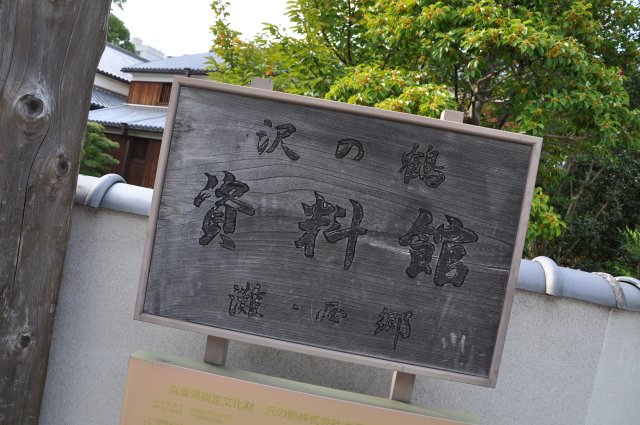 沢の鶴
資料館
灘・西郷
兵庫県指定文化財 沢の鶴株式会社